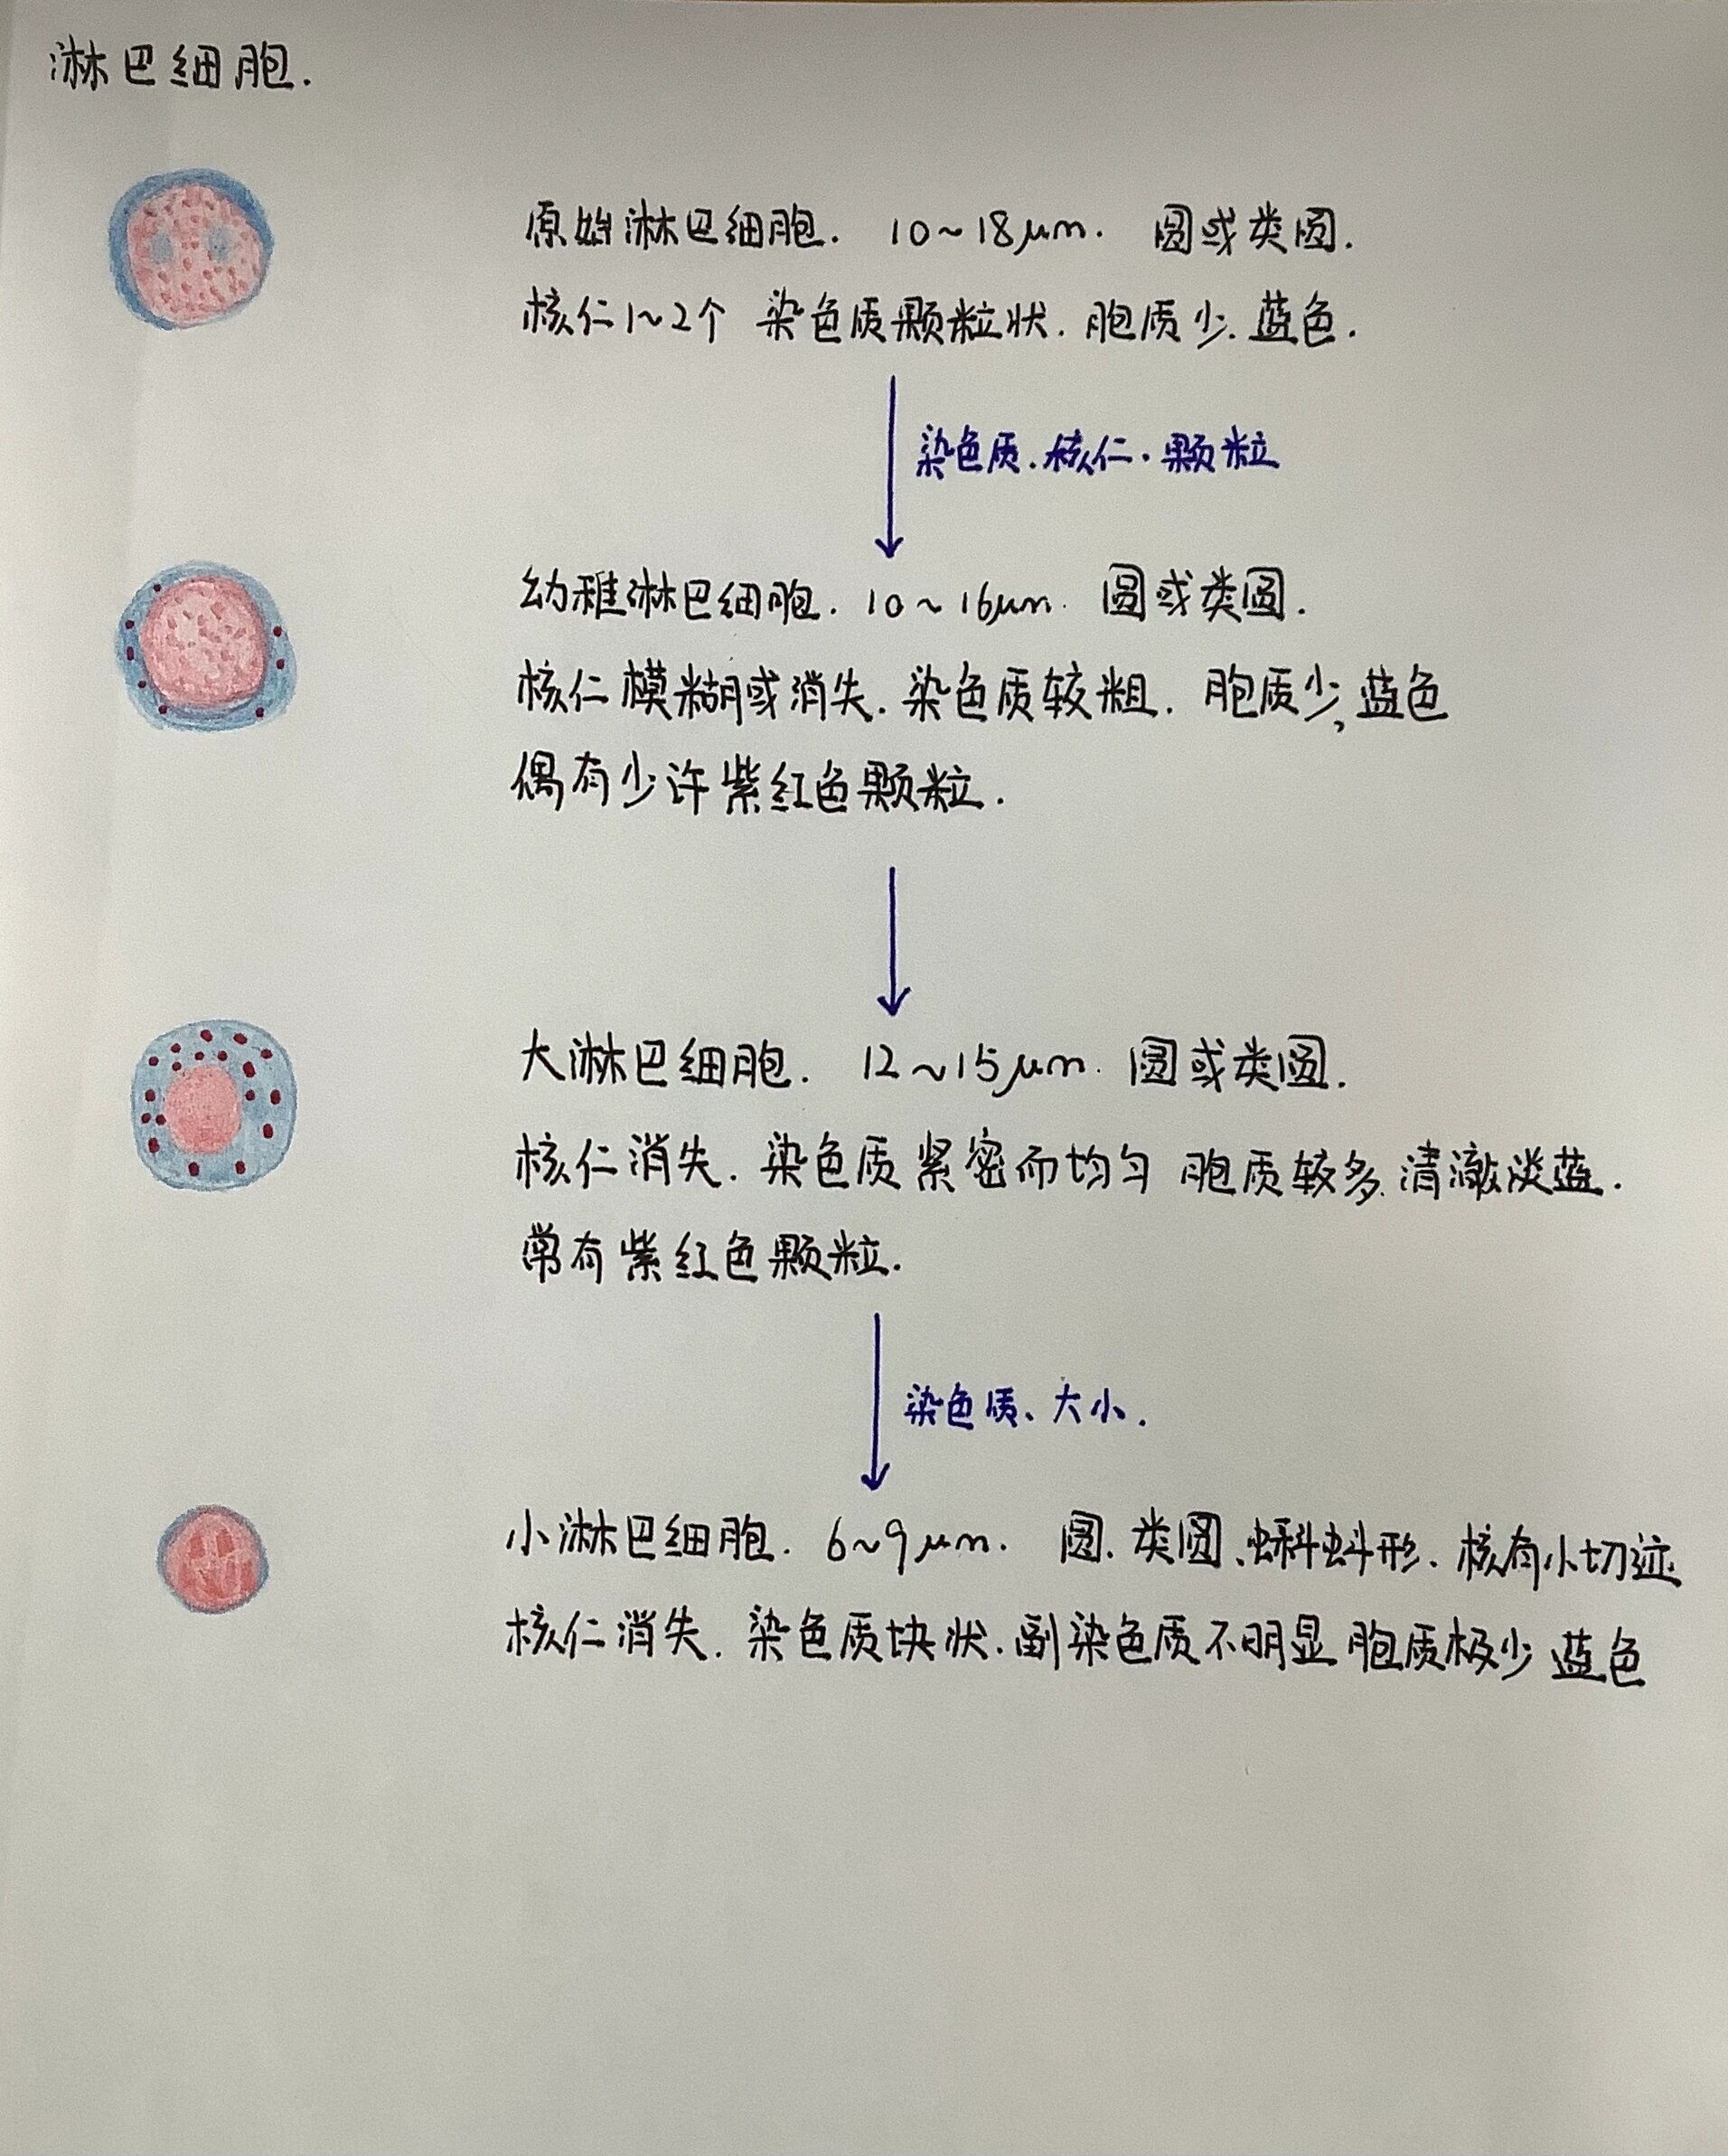 淋巴细胞.
原始淋巴细胞. 10~18μm. 圆或类圆.
核仁1~2个 染色质颗粒状. 胞质少. 蓝色.
染色质. 核仁. 颗粒
幼稚淋巴细胞. 10~16μm. 圆或类圆.
核仁模糊或消失. 染色质较粗. 胞质少, 蓝色
偶有少许紫红色颗粒.
大淋巴细胞. 12~15μm. 圆或类圆.
核仁消失. 染色质紧密而均匀 胞质较多. 清澈淡蓝.
常有紫红色颗粒.
染色质、大小.
小淋巴细胞. 6~9μm. 圆. 类圆、蝌蚪形. 核有小切迹
核仁消失. 染色质块状. 副染色质不明显 胞质极少 蓝色